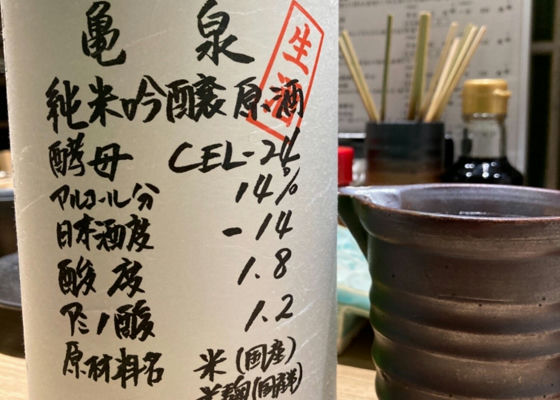 亀泉
生酒
純米吟醸原酒
酵母 CEL-24
アルコール分 14%
日本酒度 -14
酸度 1.8
アミノ酸 1.2
原材料名 米(国産)
米麹(国産米)